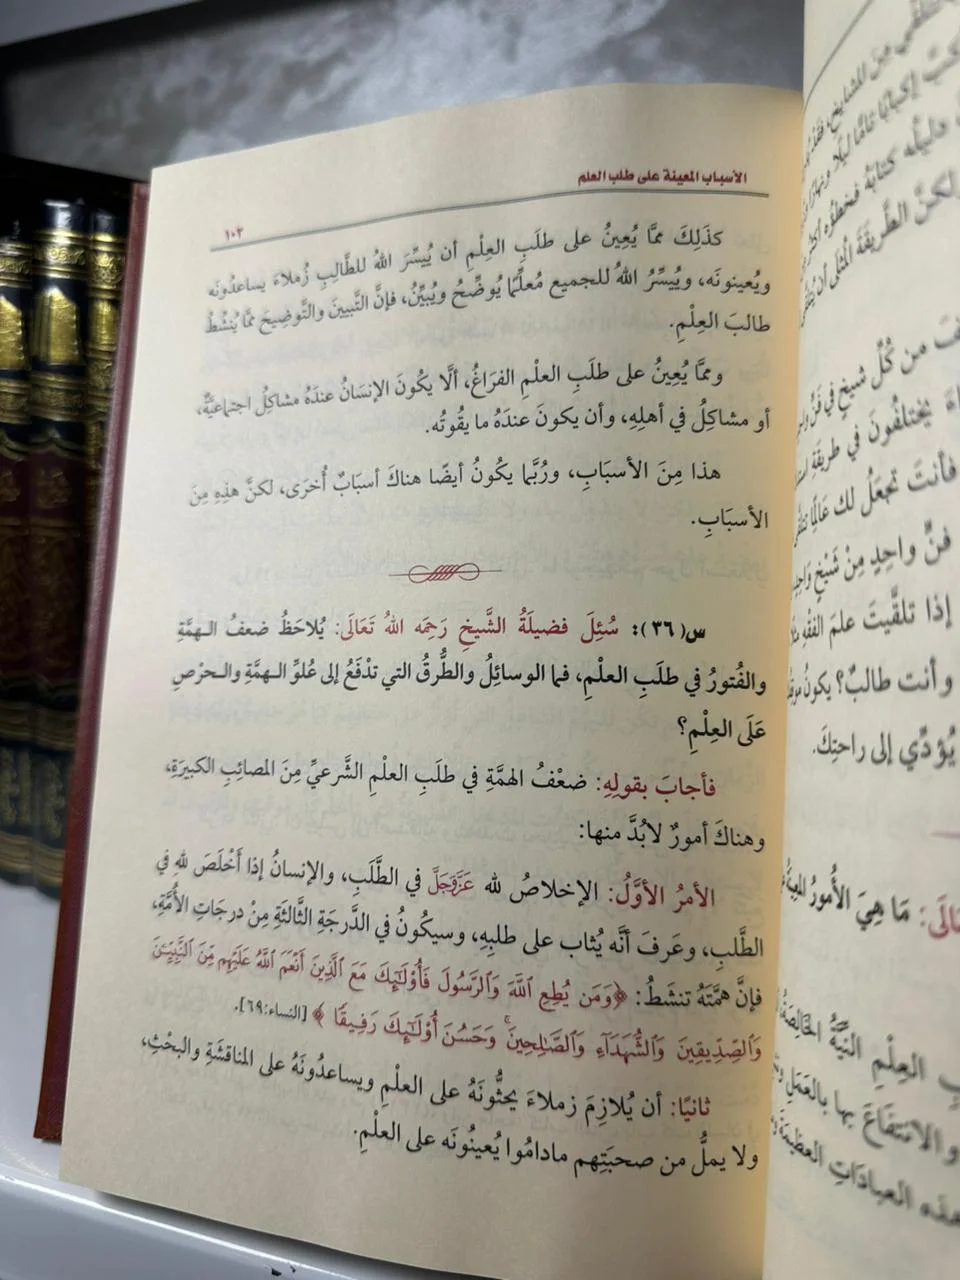 الأسباب المعينة على طلب العلم
١٠٣
كذَلِكَ ممَّا يُعِينُ على طلَبِ العِلْمِ أن يُيسِّرَ اللهُ للطَّالِبِ زُملاءَ يساعدُونَه
ويُعينونَه، ويُيسِّرُ اللهُ للجميع مُعلِّمًا يُوضِّحُ ويُبيِّنُ، فإنَّ التَّبيينَ والتَّوضِيحَ ممَّا يُنشِّطُ
طالبَ العِلْمِ.
وممَّا يُعِينُ على طلَبِ العلْمِ الفرَاغُ، ألَّا يكُونَ الإنسَانُ عندَهُ مشاكِلُ اجتماعيَّةٌ،
أو مشاكِلُ في أهلِهِ، وأن يكونَ عندَهُ ما يقُوتُه.
هذا مِنَ الأسبَابِ، ورُبَّما يكُونُ أيضًا هناكَ أسبَابٌ أُخرَى، لكنَّ هذِهِ مِنَ
الأسبَابِ.
س(٣٦): سُئِلَ فضِيلَةُ الشَّيخِ رَحِمَه اللهُ تَعَالَى: يُلاحَظُ ضعفُ الـهمَّةِ
والفُتورُ في طلَبِ العلْمِ، فما الوسائِلُ والطُّرقُ التي تدْفَعُ إلى عُلوِّ الـهمَّةِ والـحرْصِ
عَلَى العِلْمِ؟
فأجابَ بقولِهِ: ضعْفُ الهمَّةِ في طلَبِ العلْمِ الشَّرعيِّ مِنَ المصائِبِ الكبيرَةِ،
وهناكَ أمورٌ لابُدَّ منها:
الأمرُ الأوَّلُ: الإخلاصُ لله عَزَّوَجَلَّ في الطَّلَبِ، والإنسانُ إذا أَخْلَصَ للهِ في
الطَّلبِ، وعَرفَ أنَّه يُثاب على طلبِهِ، وسيكُونُ في الدَّرجَةِ الثَّالثَةِ مِنْ درجَاتِ الأُمَّةِ،
فإنَّ همَّتَهُ تنشَطُ: ﴿وَمَن يُطِعِ ٱللَّهَ وَٱلرَّسُولَ فَأُوْلَـٰٓئِكَ مَعَ ٱلَّذِينَ أَنْعَمَ ٱللَّهُ عَلَيْهِم مِّنَ ٱلنَّبِيِّـۧنَ
وَٱلصِّدِّيقِينَ وَٱلشُّهَدَآءِ وَٱلصَّـٰلِحِينَۚ وَحَسُنَ أُوْلَـٰٓئِكَ رَفِيقًا﴾ [النساء:٦٩].
ثانيًا: أن يُلازِمَ زملاءَ يحثُّونَهُ على العلْمِ ويساعدُونَهُ على المناقشَةِ والبحْثِ،
ولا يملَّ من صحبَتِهم مادامُوا يُعينُونَه على العلْمِ.
من كُلِّ شيخٍ في فَنٍّ
يختلفُونَ في طريقَةِ
فأنتَ تجعَلُ لك عَالِمًا
فنٍّ واحِدٍ مِنْ شَيْخٍ وَاحِدٍ
إذا تلقَّيتَ علمَ الفقْهِ
وأنت طالبٌ؟ يكونُ
يُؤدِّي إلى راحتِكَ.
مَا هِيَ الأُمورُ
العِلْمِ النيَّةُ الخَالِصَةُ
والانتفَاعَ بها بالعَمَلِ
العبادَاتِ العظيمَةِ